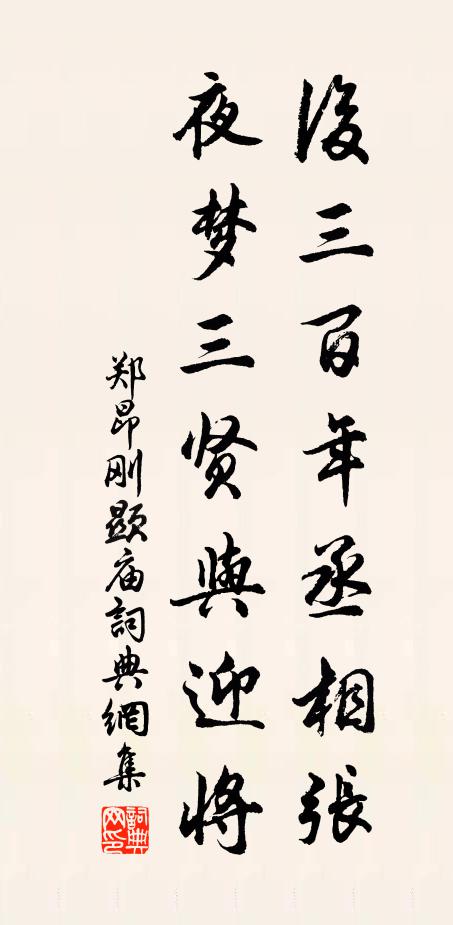 後三百年丞相張
夜梦三贤與迎将
郑昂刚显庙詞典網集
詞典網印